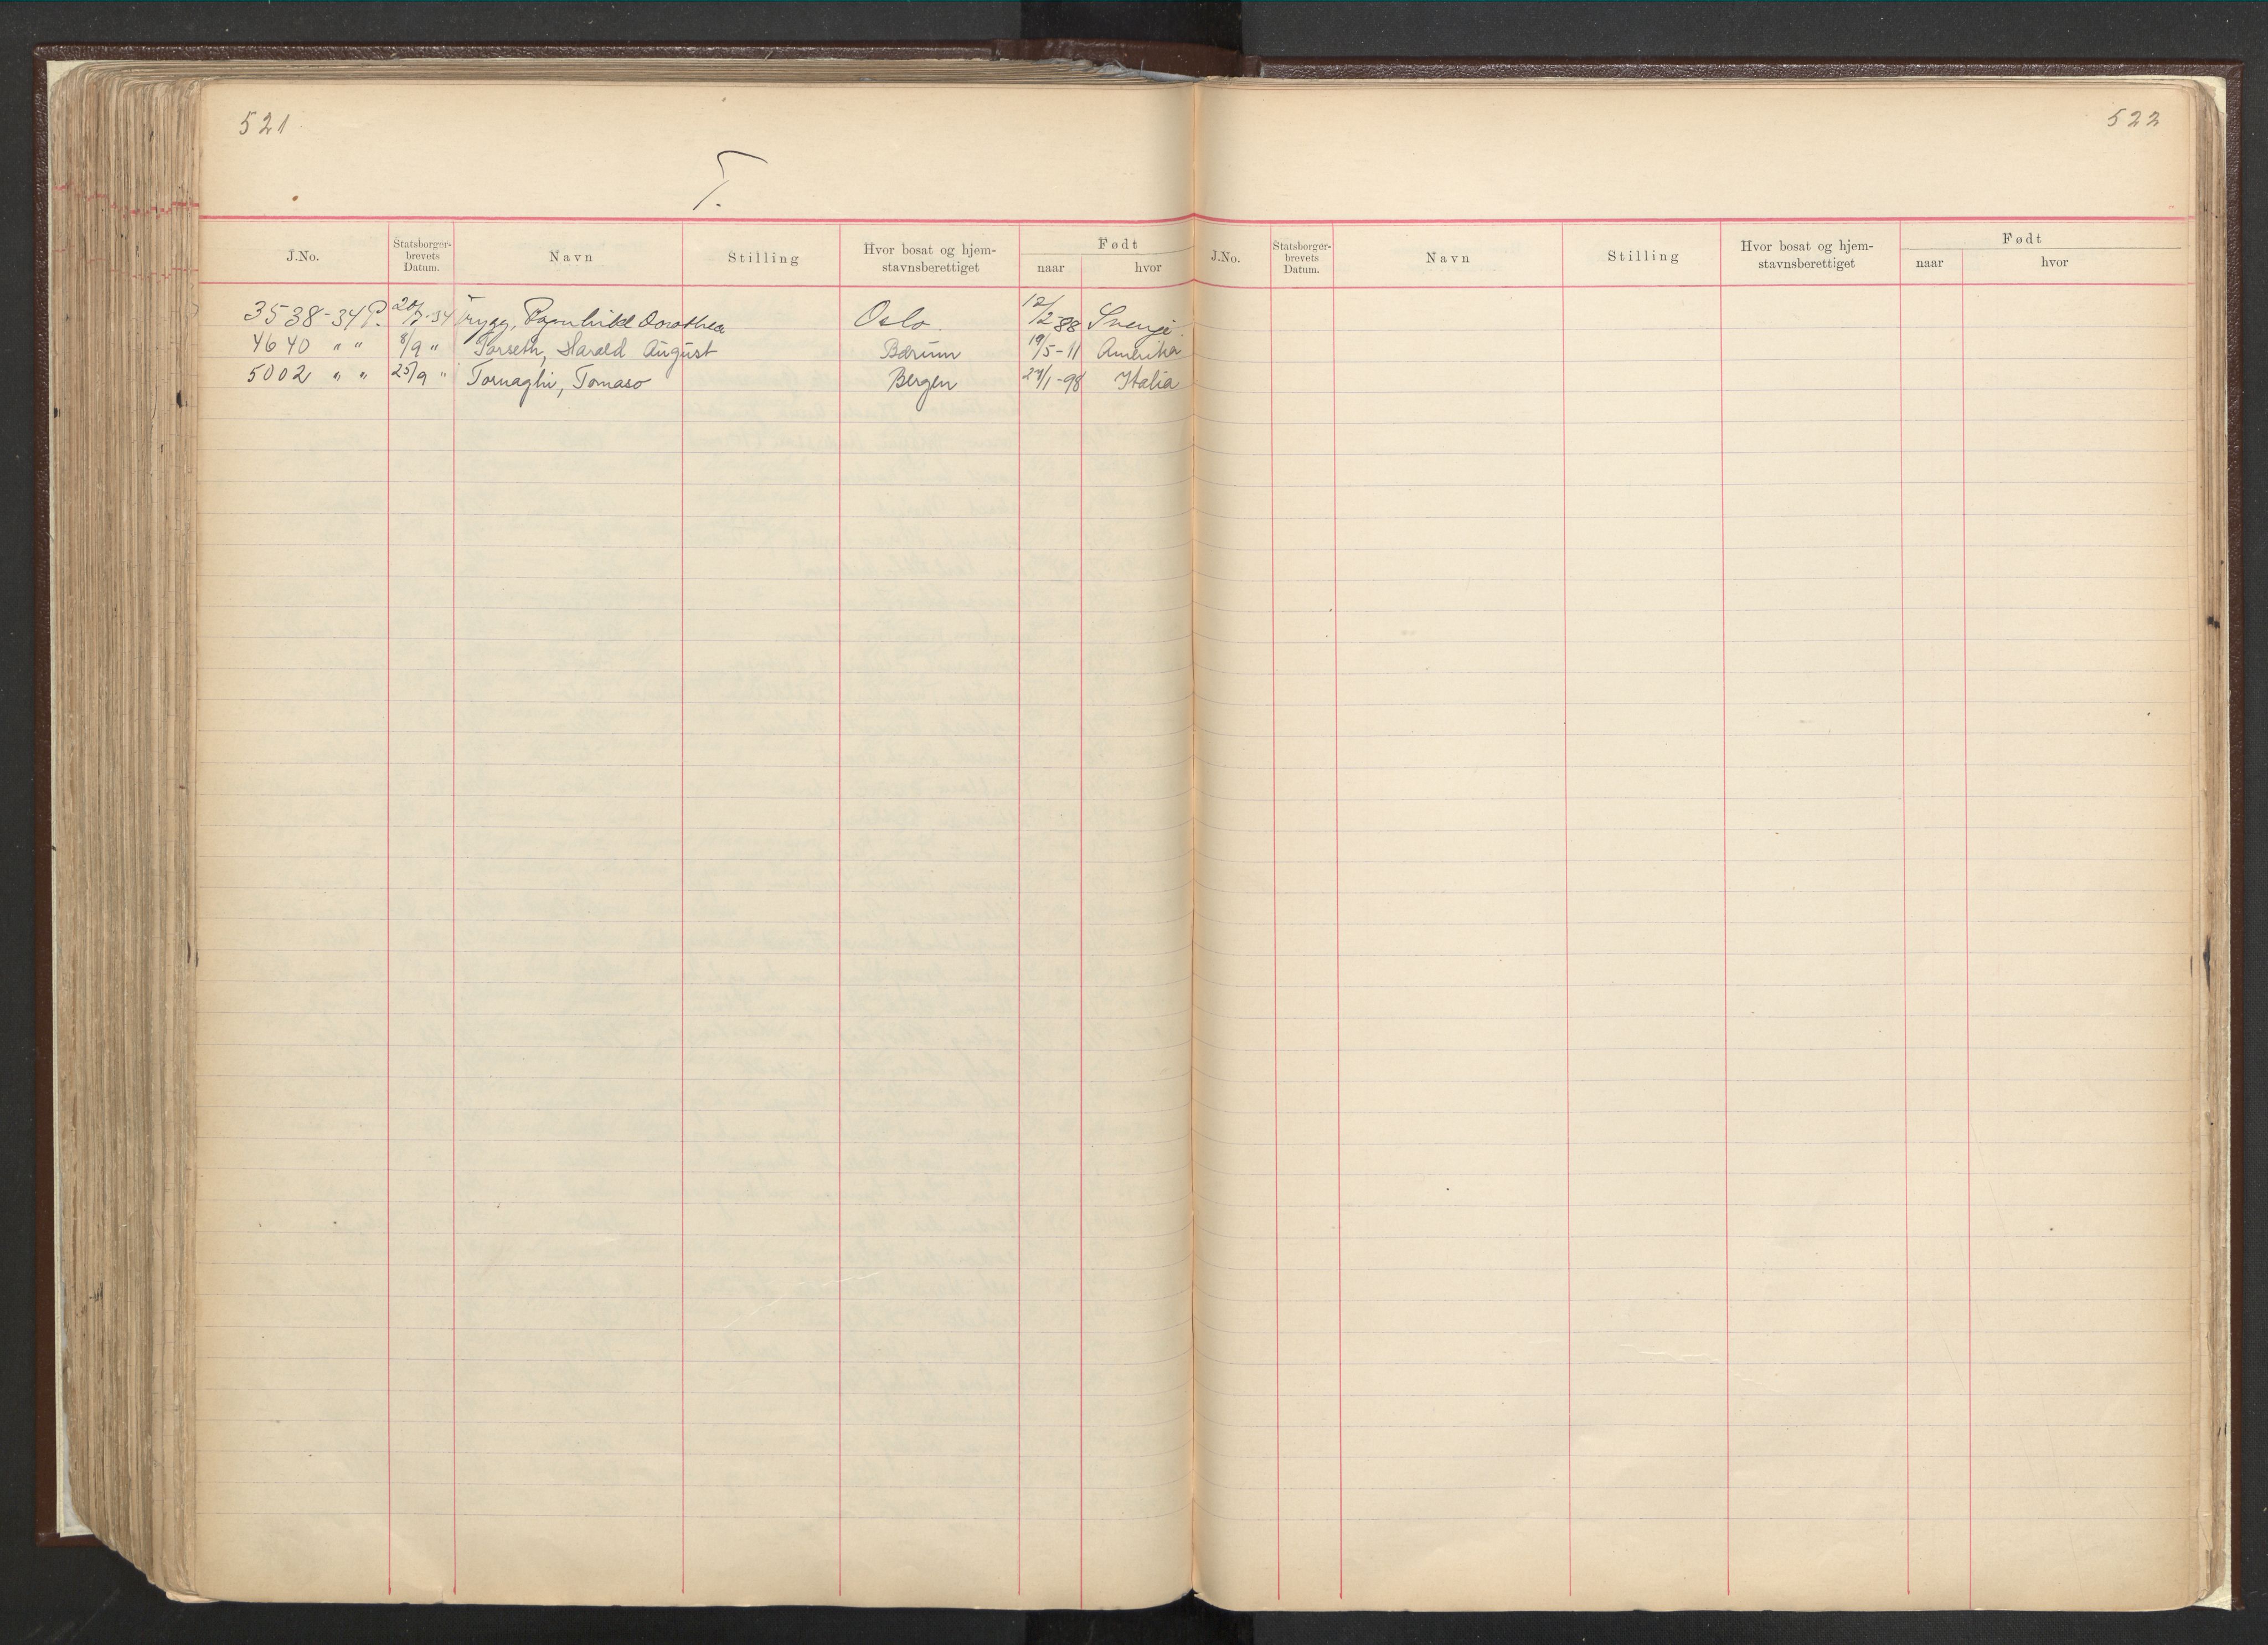 521
T.
J.No. Statsborger-brevets Datum. Navn Stilling Hvor bosat og hjem-stavnsberettiget Født naar hvor
3538-34 P. 20/7-34 Trygg, Ragnhild Dorothea Oslo 12/2-88 Sverige
4640 " " 8/9 " Torseth, Harald August Bærum 19/5-11 Amerika
5002 " " 25/9 " Tornaghi, Tomaso Bergen 27/1-98 Italia
522
J.No. Statsborger-brevets Datum. Navn Stilling Hvor bosat og hjem-stavnsberettiget Født naar hvor